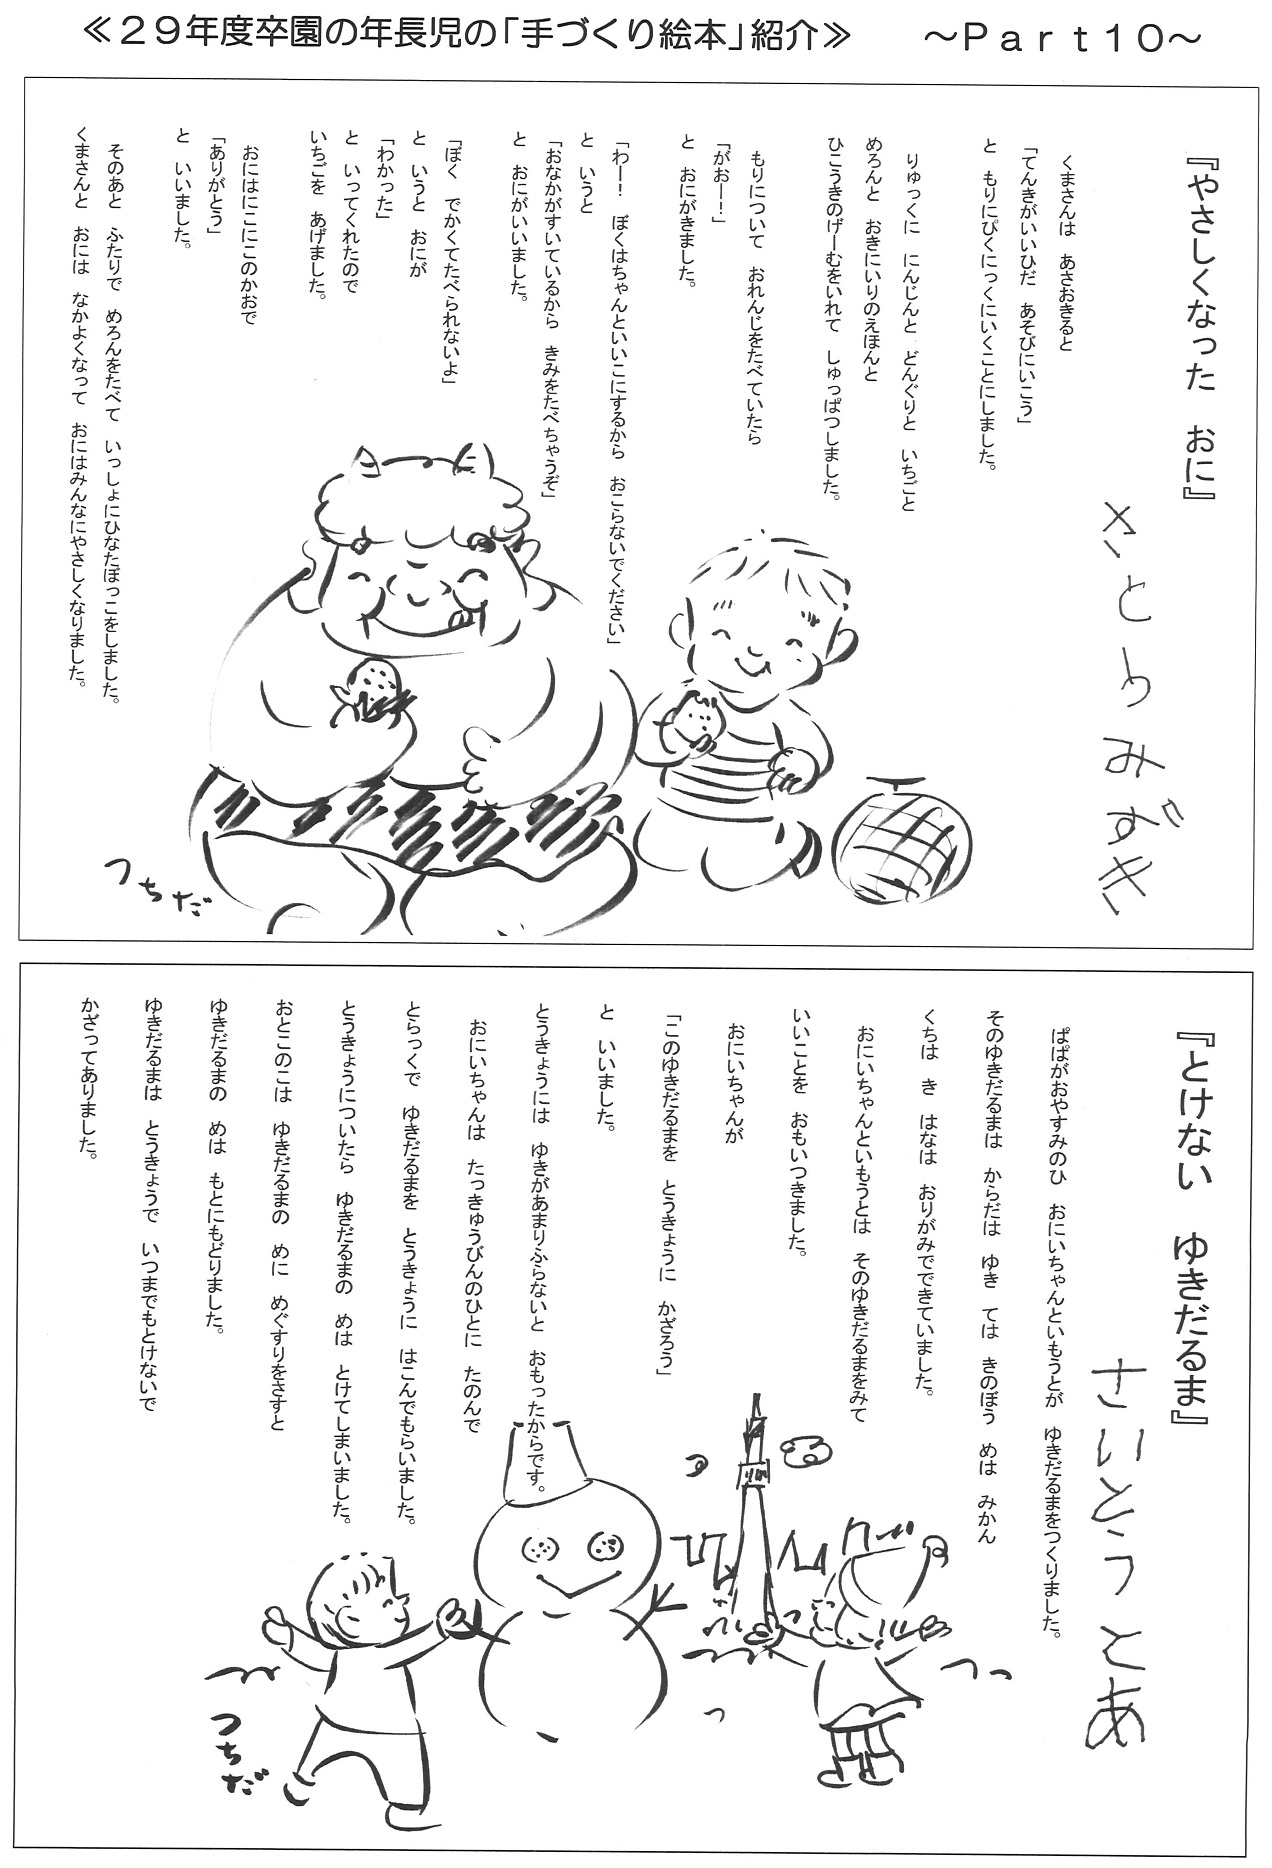 ≪２９年度卒園の年長児の「手づくり絵本」紹介≫　～Ｐａｒｔ１０～
『やさしくなった　おに』
さとう みずき
くまさんは　あさおきると
「てんきがいいひだ　あそびにいこう」
と　もりにぴくにっくにいくことにしました。
りゅっくに　にんじんと　どんぐりと　いちごと
めろんと　おきにいりのえほんと
ひこうきのげーむをいれて　しゅっぱつしました。
もりについて　おれんじをたべていたら
「がおー！」
と　おにがきました。
「わー！　ぼくはちゃんといいこにするから　おこらないでください」
と　いうと
「おなかがすいているから　きみをたべちゃうぞ」
と　おにがいいました。
「ぼく　でかくてたべられないよ」
と　いうと　おにが
「わかった」
と　いってくれたので
いちごを　あげました。
おにはにこにこのかおで
「ありがとう」
と　いいました。
そのあと　ふたりで　めろんをたべて　いっしょにひなたぼっこをしました。
くまさんと　おには　なかよくなって　おにはみんなにやさしくなりました。
つちだ
『とけない　ゆきだるま』
さいとう とあ
ぱぱがおやすみのひ　おにいちゃんといもうとが　ゆきだるまをつくりました。
そのゆきだるまは　からだは　ゆき　ては　きのぼう　めは　みかん
くちは　き　はなは　おりがみでできていました。
おにいちゃんといもうとは　そのゆきだるまをみて
いいことを　おもいつきました。
おにいちゃんが
「このゆきだるまを　とうきょうに　かざろう」
と　いいました。
とうきょうには　ゆきがあまりふらないと　おもったからです。
おにいちゃんは　たっきゅうびんのひとに　たのんで
とらっくで　ゆきだるまを　とうきょうに　はこんでもらいました。
とうきょうについたら　ゆきだるまの　めは　とけてしまいました。
おとこのこは　ゆきだるまの　めに　めぐすりをさすと
ゆきだるまの　めは　もとにもどりました。
ゆきだるまは　とうきょうで　いつまでもとけないで
かざってありました。
つちだ